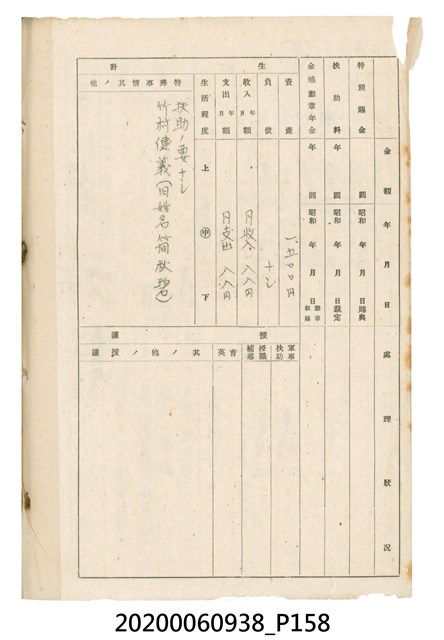 金額 年 月 日 處理狀況
特別賜金 圓 昭和 年 月 日賜與
扶助料 年 圓 昭和 年 月 日裁定
金鵄勳章年金 年 圓 昭和 年 月 日
生計
資產 一、五〇〇円
負債 ナシ
收入 年月額 月収入 八八円
支出 年月額 月支出 八八円
生活程度 上 中 下
特殊事情其ノ他
扶助ノ要ナシ
竹村健義(旧姓名簡秋碧)
援護
軍事扶助
授職補導
育英
其ノ他ノ援護
20200060938_P158